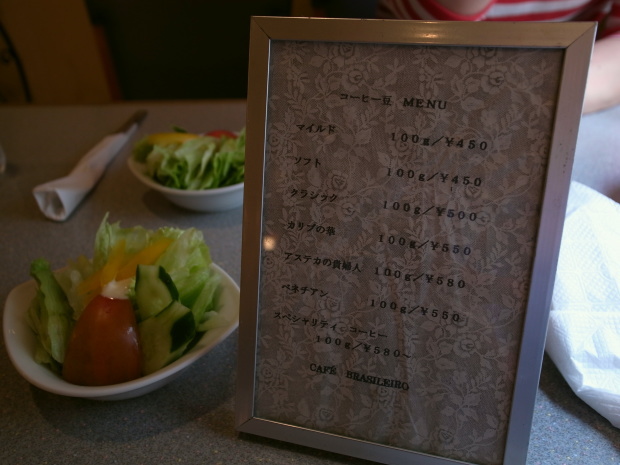 コーヒー豆 MENU
マイルド 100g/¥450
ソフト 100g/¥450
クラシック 100g/¥500
カリブの華 100g/¥550
アステカの貴婦人 100g/¥580
ベネチアン 100g/¥550
スペシャリティーコーヒー
100g/¥580~
CAFÉ BRASILEIRO